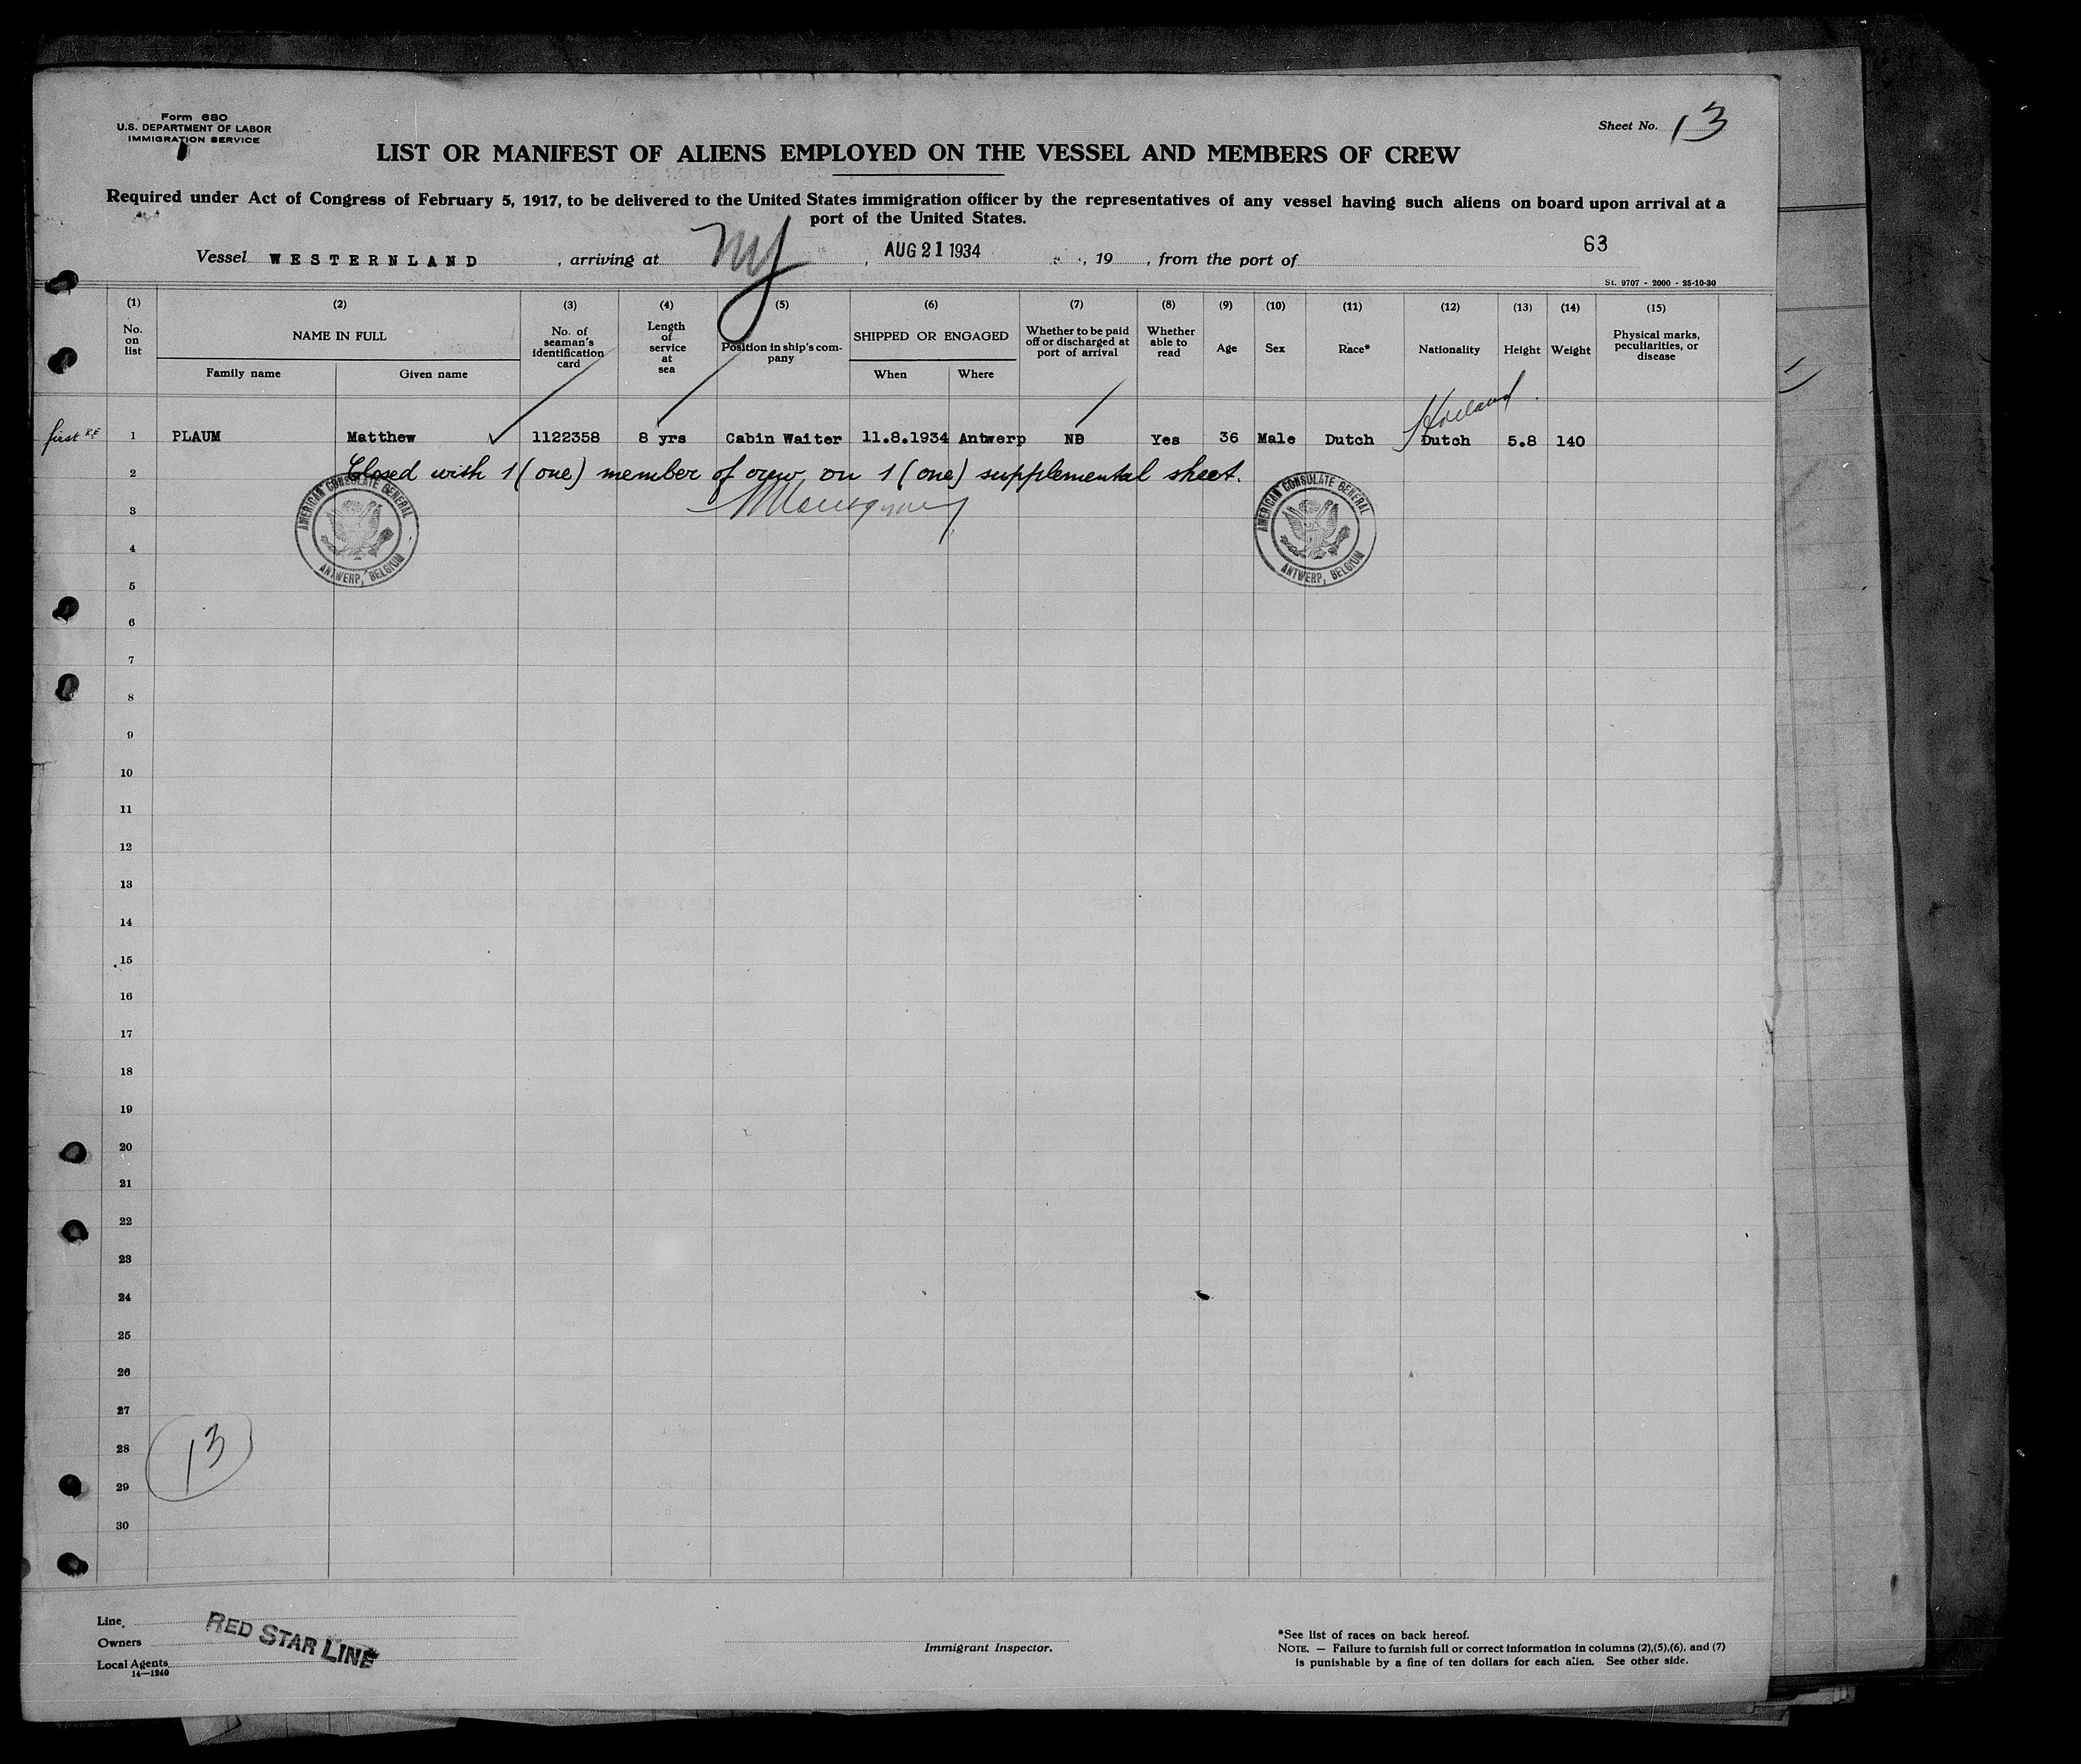 Form 680
U.S. DEPARTMENT OF LABOR
IMMIGRATION SERVICE
Sheet No. 13
LIST OR MANIFEST OF ALIENS EMPLOYED ON THE VESSEL AND MEMBERS OF CREW
Required under Act of Congress of February 5, 1917, to be delivered to the United States immigration officer by the representatives of any vessel having such aliens on board upon arrival at a
port of the United States.
63
Vessel WESTERNLAND , arriving at NY , AUG 21 1934 , 19 , from the port of
St. 9707 - 2000 - 25-10-30
(1) (2) (3) (4) (5) (6) (7) (8) (9) (10) (11) (12) (13) (14) (15)
No. on list
NAME IN FULL
Family name Given name
No. of seaman's identification card
Length of service at sea
Position in ship's com-pany
SHIPPED OR ENGAGED
When Where
Whether to be paid off or discharged at port of arrival
Whether able to read
Age
Sex
Race*
Nationality
Height
Weight
Physical marks, peculiarities, or disease
Holland
first 1 PLAUM Matthew 1122358 8 yrs Cabin Waiter 11.8.1934 Antwerp ND Yes 36 Male Dutch Dutch 5.8 140
2 Closed with 1 (one) member of crew on 1 (one) supplemental sheet.
3
AMERICAN CONSULATE GENERAL
ANTWERP, BELGIUM
AMERICAN CONSULATE GENERAL
ANTWERP, BELGIUM
4
5
6
7
8
9
10
11
12
13
14
15
16
17
18
19
20
21
22
23
24
25
26
27
28
13
29
30
Line
Owners
Local Agents
14—1240
RED STAR LINE
Immigrant Inspector.
*See list of races on back hereof.
NOTE. — Failure to furnish full or correct information in columns (2),(5),(6), and (7)
is punishable by a fine of ten dollars for each alien. See other side.